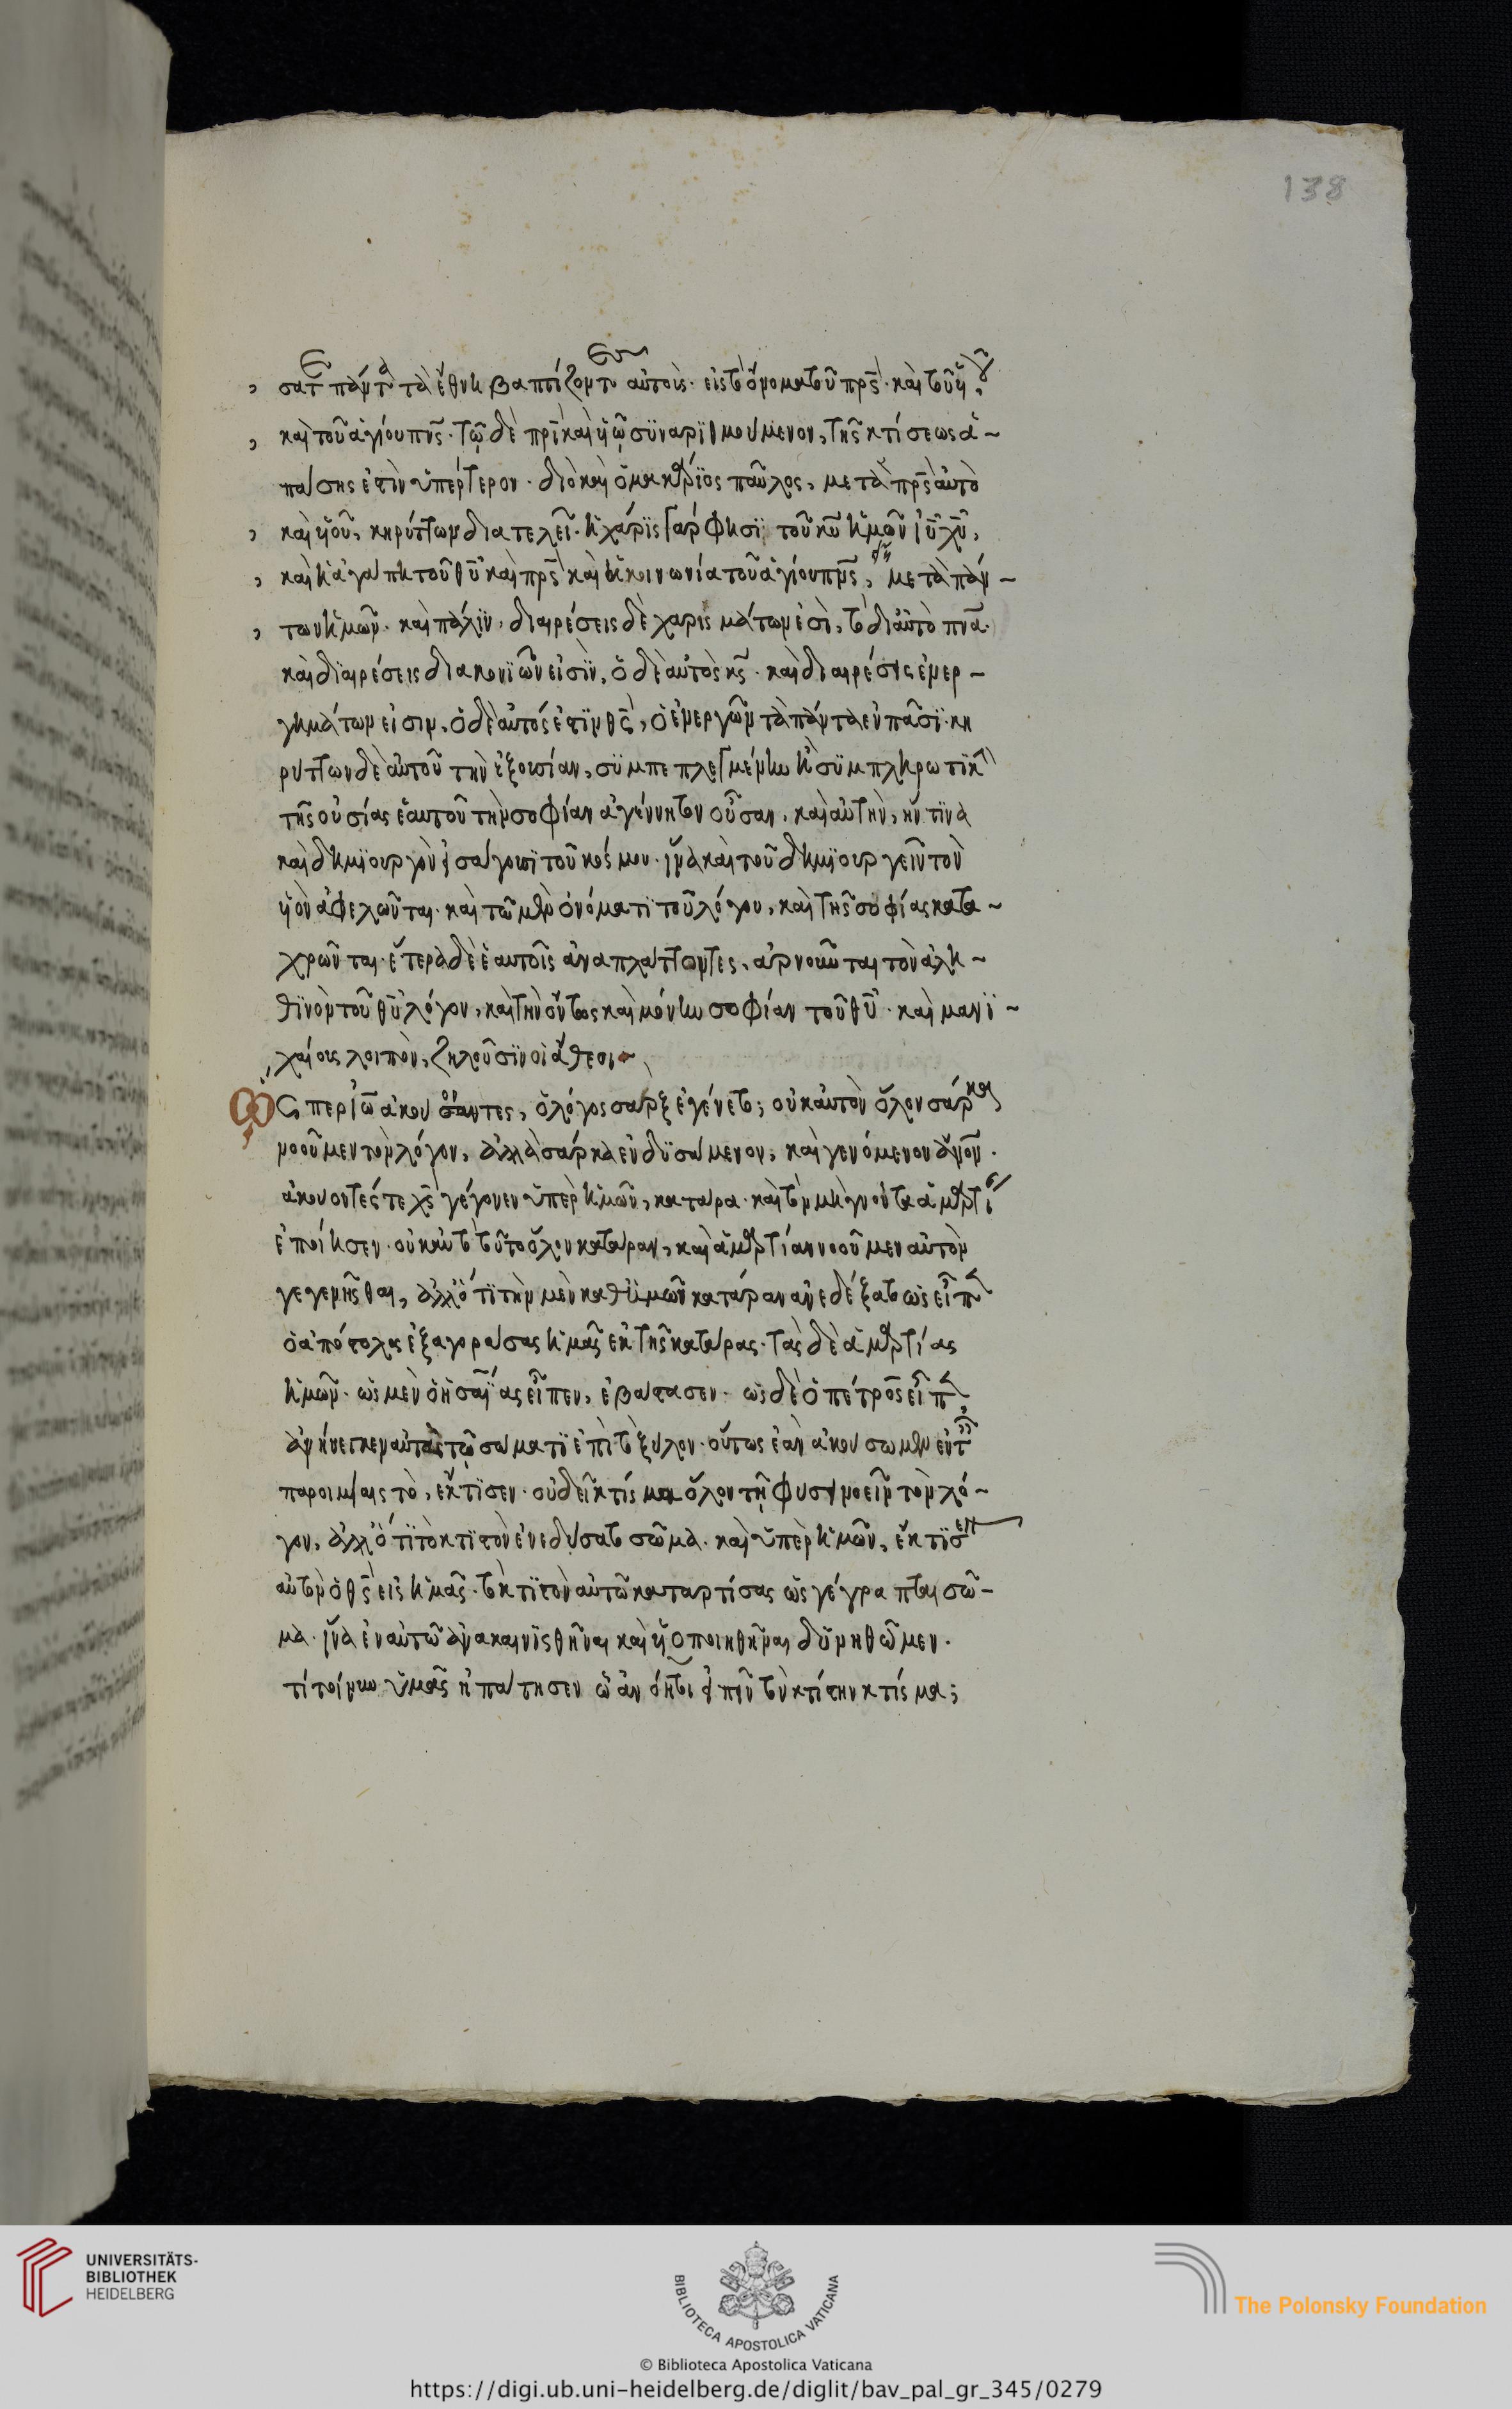 138
σατε πάντα τὰ ἔθνη βαπτίζοντες αὐτοὺς· εἰς τὸ ὄνομα τοῦ πρς· καὶ τοῦ υἱοῦ,
καὶ τοῦ ἁγίου πνς· τῷ δὲ πρὶ καὶ υἱῷ συναριθμούμενον, τῆς κτίσεως ἁ–
πάσης ἐστὶν ὑπέρτερον· διὸ καὶ ὁ μακάριος παῦλος, μετὰ πρς αὐτὸ
καὶ υἱοῦ, κηρύττων διατελεῖ· ἡ χάρις γάρ φησι τοῦ κυ ἡμῶν ιυ χυ,
καὶ ἡ ἀγάπη τοῦ θυ καὶ πρς καὶ ἡ κοινωνία τοῦ ἁγίου πνς, μετὰ πάν–
των ἡμῶν· καὶ πάλιν, διαιρέσεις δὲ χαρισμάτων εἰσὶ, τὸ δὲ αὐτὸ πνα·
καὶ διαιρέσεις διακονιῶν εἰσὶν, ὁ δὲ αὐτὸς κς· καὶ διαιρέσεις ἐνερ–
γημάτων εἰσιν, ὁ δὲ αὐτός ἐστιν θς, ὁ ἐνεργῶν τὰ πάντα ἐν πᾶσι· κη
ρύττων δὲ αὐτοῦ τὴν ἐξουσίαν, συμπεπλεγμένην ἢ συμπληρωτικὴν
τῆς οὐσίας ἑαυτοῦ τὴν σοφίαν ἀγέννητον οὖσαν, καὶ αὐτὴν, ἥντινα
καὶ δημιουργὸν εἰσάγουσι τοῦ κόσμου· ἵνα καὶ τοῦ δημιουργεῖν τὸν
υἱὸν ἀφελῶνται· καὶ τῷ μὲν ὀνόματι τοῦ λόγου, καὶ τῆς σοφίας κατα–
χρῶνται· ἕτερα δὲ ἑαυτοῖς ἀναπλάττοντες, ἀρνοῦνται τὸν ἀλη–
θινὸν τοῦ θυ λόγον, καὶ τὴν ὄντως καὶ μόνην σοφίαν τοῦ θυ· καὶ μανι–
χαίους λοιπὸν, ζηλοῦσιν οἱ ἄθεοι
Ὥσπερ ἰω ἀκούσαντες, ὁ λόγος σαρξ ἐγένετο; οὐκ αὐτὸν ὅλον σάρκα
νοοῦμεν τὸν λόγον, ἀλλὰ σάρκα ἐνδυσάμενον, καὶ γενόμενον ἄνον·
ἀκούοντές τε χς γέγονεν ὑπὲρ ἡμῶν, κατάρα· καὶ τὸν μὴ γνόντα ἁμαρτίαν
ἐποίησεν· οὐκ αὐτὸ τοῦτο ὅλον κατάραν, καὶ ἁμαρτίαν νοοῦμεν αὐτὸν
γεγενῆσθαι, ἀλλ' ὅτι τὴν μὲν καθ' ἡμῶν κατάραν ἀνεδέξατο ὡς εἶπεν
ὁ ἀπόστολος ἐξαγοράσας ἡμᾶς ἐκ τῆς κατάρας· τὰς δὲ ἁμαρτίας
ἡμῶν· ὡς μὲν ὁ ἠσαΐας εἶπεν, ἐβάστασεν· ὡς δὲ ὁ πέτρος εἶπεν,
ἀνήνεγκεν αὐτὰς τῷ σώματι ἐπὶ τὸ ξύλον· οὕτως ἐὰν ἀκούσωμεν ἐν ταῖς
παροιμίαις τὸ, ἔκτισεν· οὐ δεῖ κτίσμα ὅλον τῇ φύσει νοεῖν τὸν λό–
γον, ἀλλ' ὅτι τὸ κτιστὸν ἐνεδύσατο σῶμα· καὶ ὑπὲρ ἡμῶν, ἔκτισεν
αὐτὸν ὁ θς εἰς ἡμᾶς· τὸ κτιστὸν αὐτῷ καταρτίσας ὡς γέγραπται σῶ–
μα· ἵνα ἐν αὐτῷ ἀνακαινισθῆναι καὶ υἱοποιηθῆναι δυνηθῶμεν·
τί τοίνυν ὑμᾶς ἠπάτησεν ὦ ἀνόητοι εἰπεῖν τὸν κτίστην κτίσμα;
UNIVERSITÄTS-
BIBLIOTHEK
HEIDELBERG
BIBLIOTECA APOSTOLICA VATICANA
The Polonsky Foundation
© Biblioteca Apostolica Vaticana
https://digi.ub.uni-heidelberg.de/diglit/bav_pal_gr_345/0279